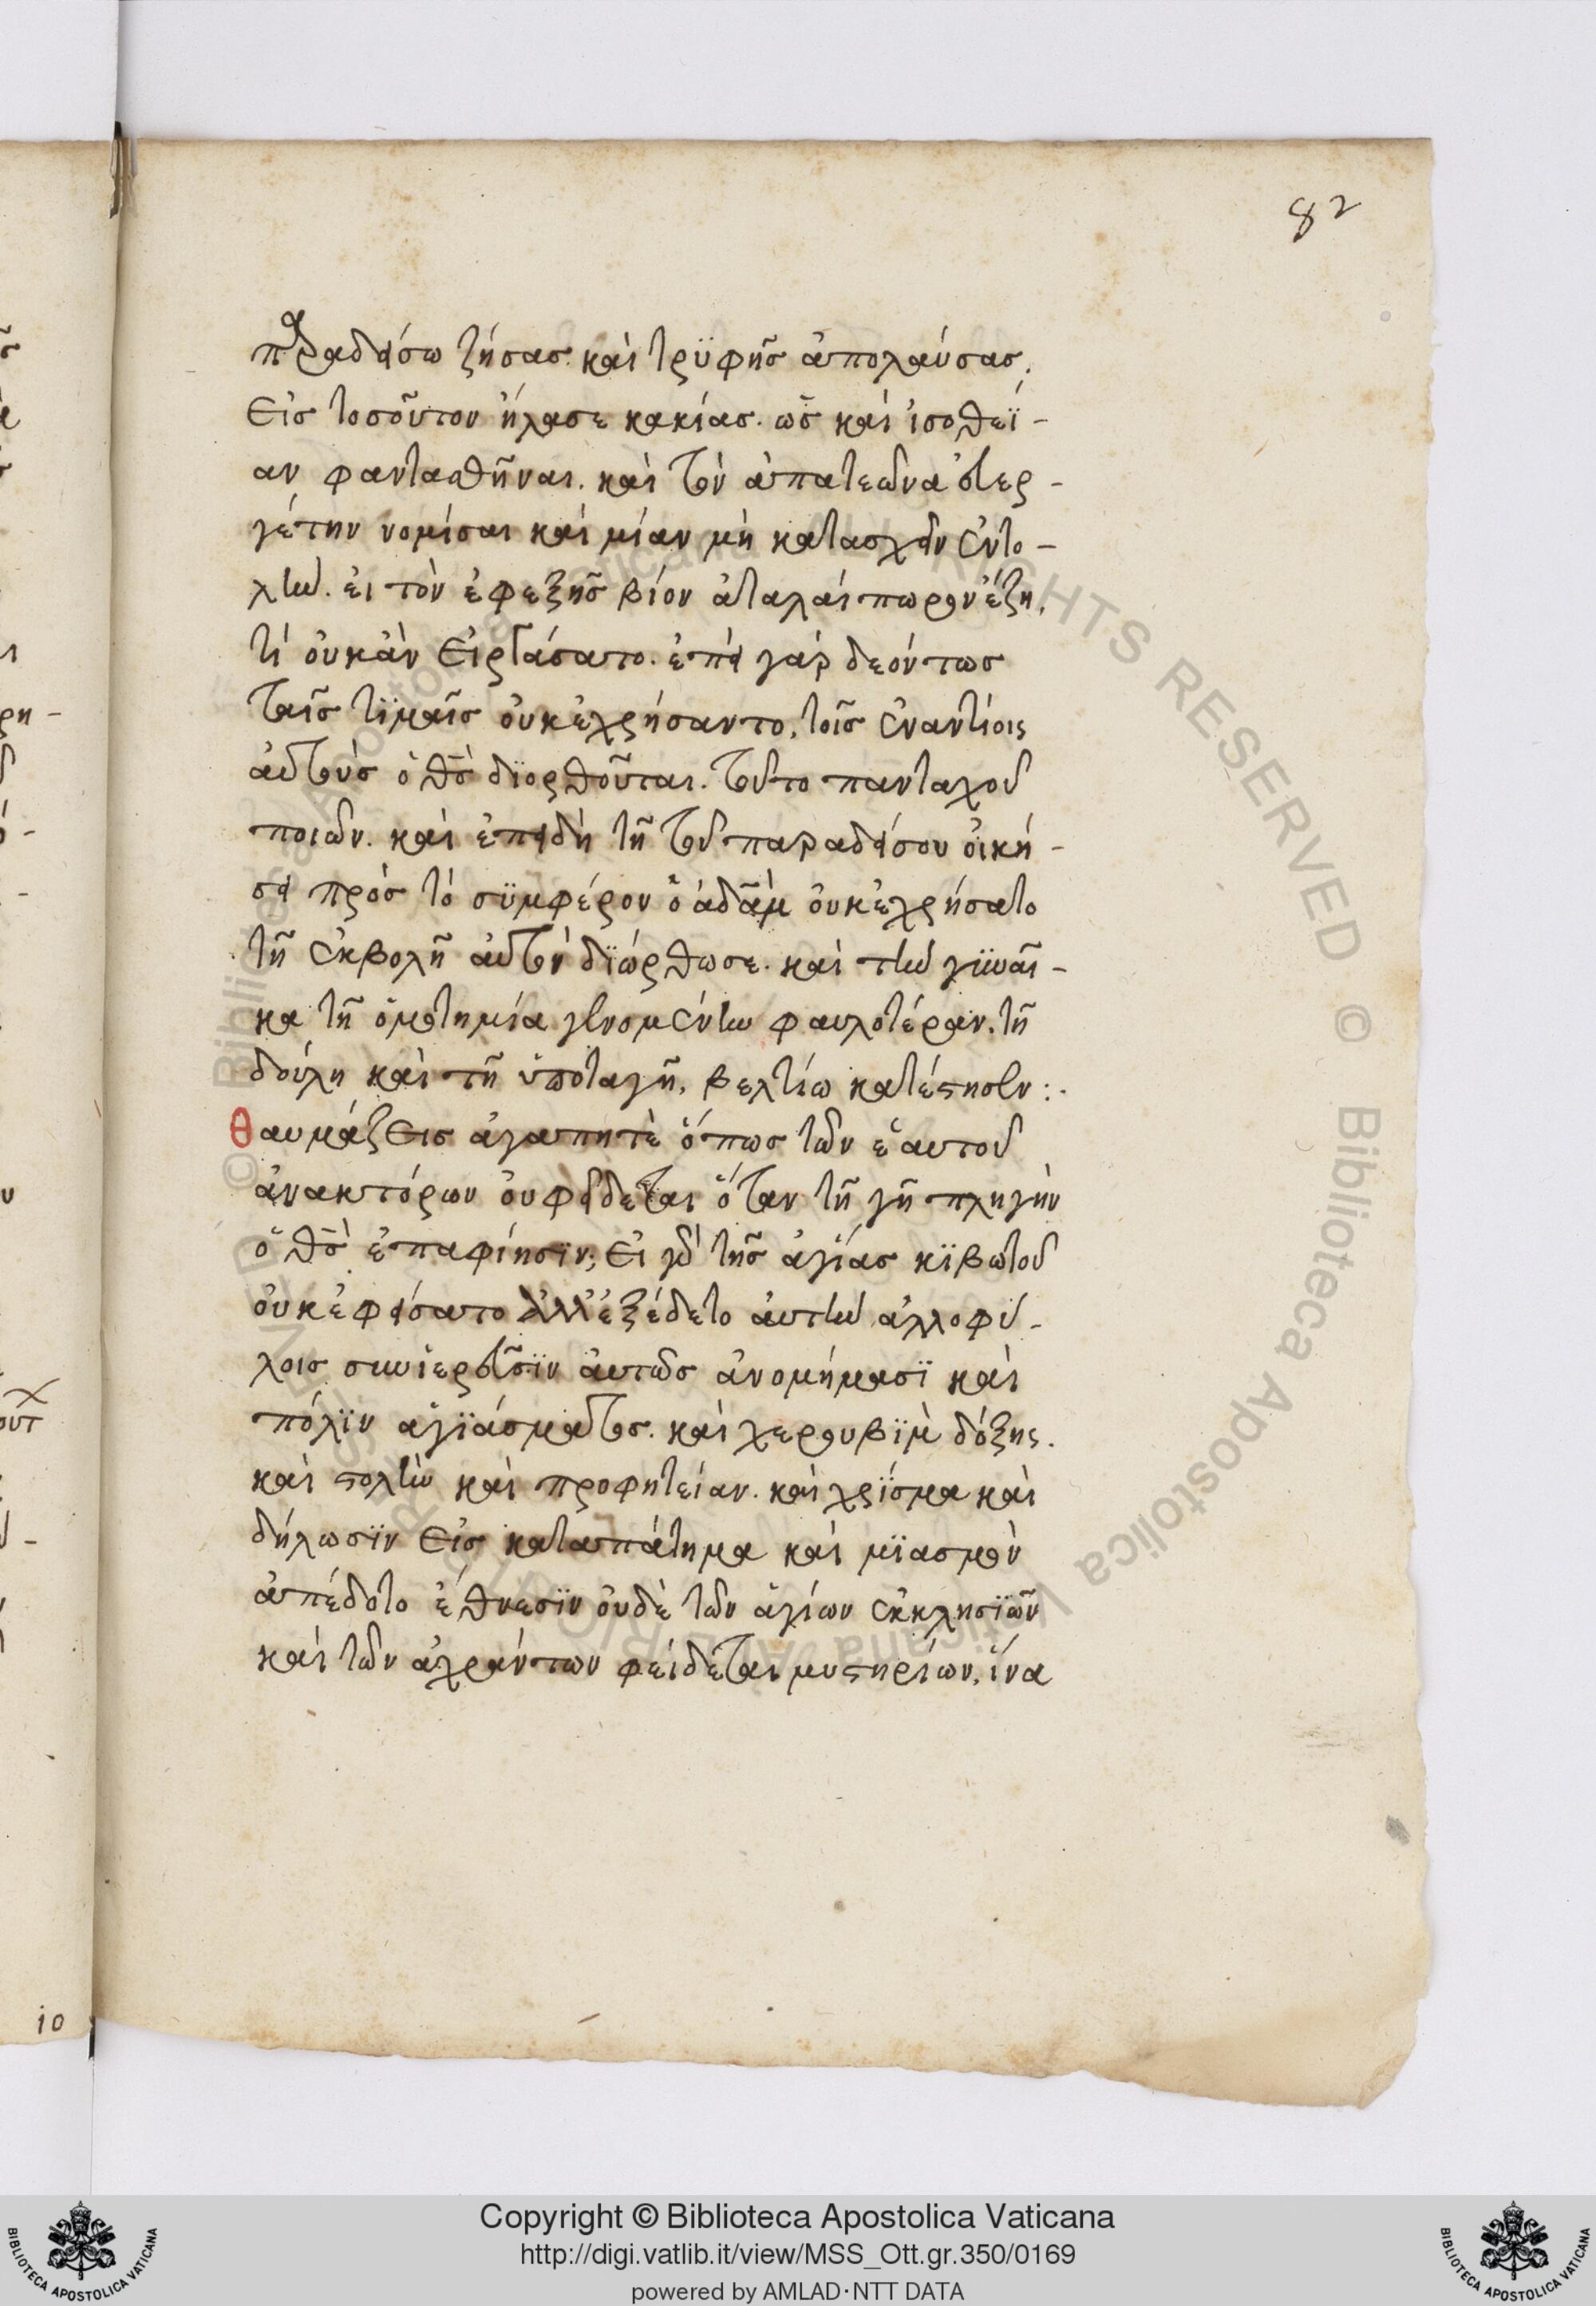 82
παραδείσω ζήσας. καὶ τρϋφῆς ἀπολαύσας.
εἰς τοσοῦτον ἤλασε κακίας. ὡς καὶ ἰσοθεΐ-
αν φαντασθῆναι. καὶ τὸν ἀπατεῶνα
γέτην νομίσαι καὶ μίαν μὴ κατασχεῖν ἐντο-
λήν. εἰ τὸν ἐφεξῆς βίον ἀταλαίπωρον ἔζη.
τί οὐκ ἂν εἰργάσατο. ἐπεὶ γὰρ δεόντως
ταῖς τϊμαῖς οὐκ ἐχρήσαντο, τοῖς ἐναντίοις
αὐτοὺς ὁ θς̄ διορθοῦται. τοῦτο πανταχοῦ
ποιῶν. καὶ ἐπειδὴ τῆ τοῦ παραδείσου οἰκή-
σει πρὸς τὸ σϋμφέρον ὁ ἀδὰμ οὐκ ἐχρήσατο
τῆ ἐκβολῆ αὐτὸν διώρθωσε. καὶ τὴν γϋναῖ-
κα τῆ ὁμοτημία γενομένην φαυλοτέραν. τῆ
δούλη καὶ τῆ ὑποταγῆ, βελτίω κατέστησεν:.
θαυμάζεις ἀγαπητὲ ὅπως τῶν ἑαυτοῦ
ἀνακτόρων οὐ φείδεται ὅταν τῆ γῆ πληγὴν
ὁ θς̄ ἐπαφίησϊν; εἰ γὰρ τῆς ἁγίας κϊβωτοῦ
οὐκ ἐφείσατο ἀλλ' ἐξέδετο αὐτὴν ἀλλοφύ-
λοις σὺν ἱερεῦσϊν αὐτοῖς ἀνομήμασϊ καὶ
πόλϊν ἁγϊάσματος. καὶ χερουβϊμ̀ δόξης.
καὶ στολὴν καὶ προφητείαν. καὶ χρῖσμα καὶ
δήλωσϊν εἰς καταπάτημα καὶ μϊασμὸν
ἀπέδοτο ἔθνεσϊν οὐδὲ τῶν ἁγίων ἐκκλησϊῶν
καὶ τῶν ἀχράντων φείδεται μυστηρίων, ἵνα
10
Copyright © Biblioteca Apostolica Vaticana
http://digi.vatlib.it/view/MSS_Ott.gr.350/0169
powered by AMLAD·NTT DATA
BIBLIOTECA APOSTOLICA VATICANA
BIBLIOTECA APOSTOLICA VATICANA